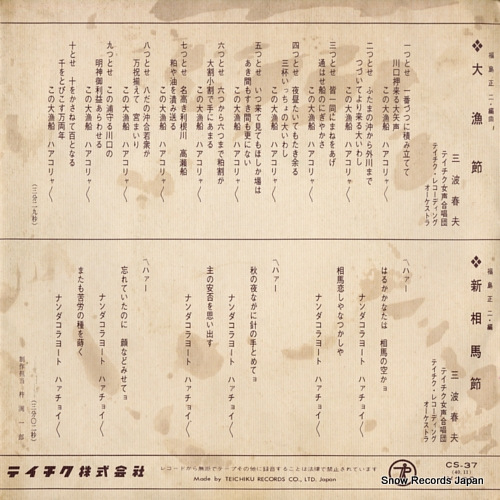 福島正二・編曲
❖大漁節
三波春夫
テイチク女声合唱団
テイチク・レコーディング
オーケストラ
一つとせ 一番づつに積み立てて
川口押来る大矢声
この大漁船 ハアコリャ〱
二つとせ ふたまの沖から外川まで
つづいてより来る大いわし
この大漁船 ハアコリャ〱
三つとせ 皆一同にまねをあげ
通はせ船のにぎやかさ
この大漁船 ハアコリャ〱
四つとせ 夜昼たいてもたき余る
三杯いっちょの大いわし
この大漁船 ハアコリャ〱
五つとせ いつ来て見てもほしか場は
あき間もすき間も更にない
この大漁船 ハアコリャ〱
六つとせ 六つから六つまで粕割が
大割小割で手にあまる
この大漁船 ハアコリャ〱
七つとせ 名高き利根川 高瀬船
粕や油を漬み送る
この大漁船 ハアコリャ〱
八つとせ 八だの沖合若衆が
万祝揃えて 宮まいり
この大漁船 ハアコリャ〱
九つとせ この浦守る川口の
明神御利益あらわせる
この大漁船 ハアコリャ〱
十とせ 十をかさねて百となる
千をとびこす万両年
この大漁船 ハアコリャ〱
(三分二九秒)
福島正二・編
❖新相馬節
三波春夫
テイチク女声合唱団
テイチク・レコーディング
オーケストラ
〽ハァー
はるかかなたは 相馬の空かョ
ナンダコラヨート ハァチョイ〱
相馬恋しやなつかしや
ナンダコラヨート ハァチョイ〱
〽ハァー
秋の夜ながに針の手とめてョ
ナンダコラヨート ハァチョイ〱
主の安否を思い出す
ナンダコラヨート ハァチョイ〱
〽ハァー
忘れていたのに 顔などみせてョ
ナンダコラヨート ハァチョイ〱
またも苦労の種を蒔く
ナンダコラヨート ハァチョイ〱
(三分〇二秒)
テイチク株式会社
レコードから無断でテープその他に録音することは法律で禁止されています
Made by TEICHIKU RECORDS CO., LTD. Japan
CS-37
(40.11)
Show Records Japan
Show-Records.com